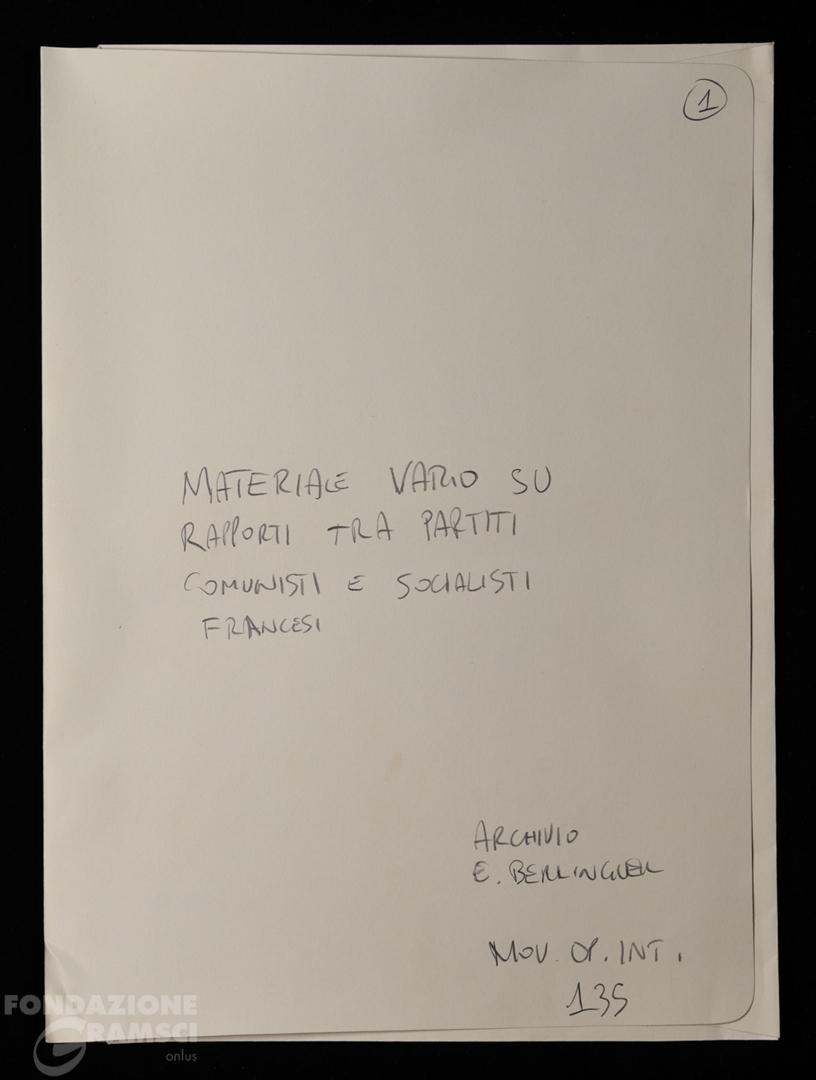 1
MATERIALE VARIO SU
RAPPORTI TRA PARTITI
COMUNISTI E SOCIALISTI
FRANCESI
ARCHIVIO
E. BERLINGUER
MOV. OP. INT.
135
FONDAZIONE
GRAMSCI
onlus